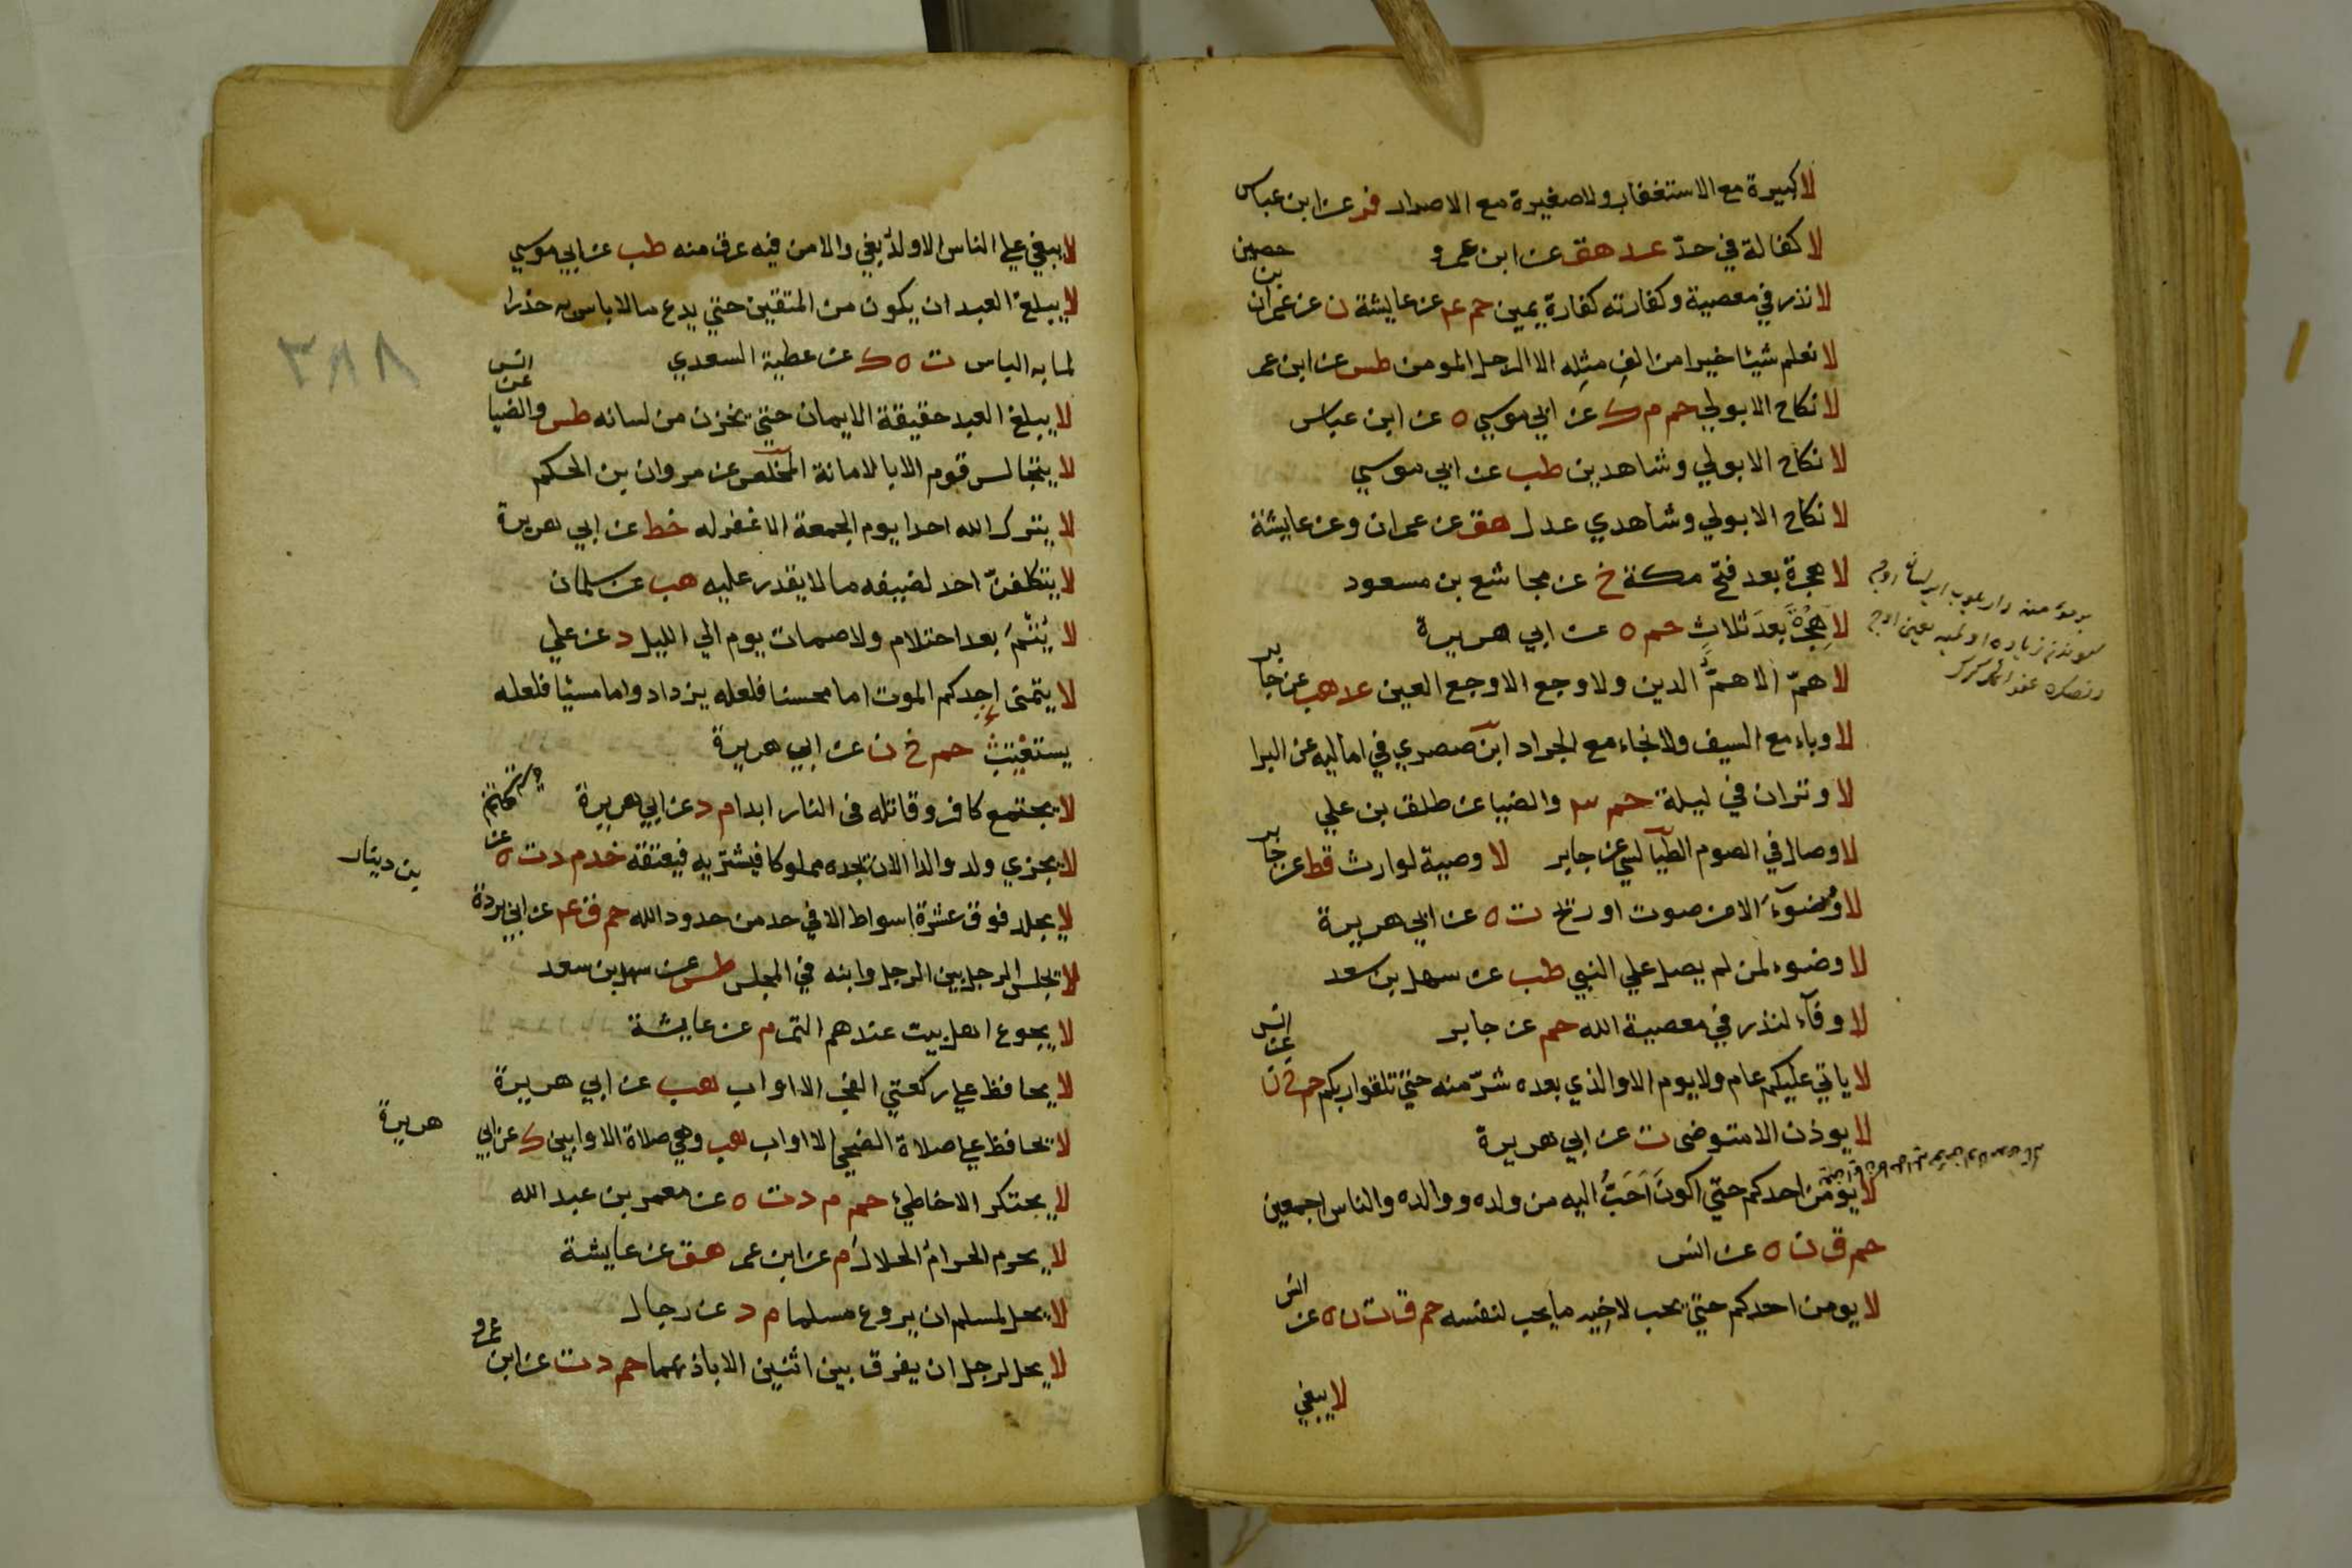 لا كبيرة مع الاستغفار ولا صغيرة مع الاصرار فر عن ابن عباس
لا كفالة في حدّ عد هق عن ابن عمرو
لا نذر في معصية وكفارته كفارة يمين حم عم عن عايشة ن عن عمران
بن حصين
لا نعلم شيئا خيرا من الف مثله الا الرجل المومن طس عن ابن عمر
لا نكاح الا بولي حم م ك عن ابي موسي ه عن ابن عباس
لا نكاح الا بولي وشاهدين طب عن ابي موسي
لا نكاح الا بولي وشاهدي عدل هق عن عمران وعن عايشة
لا هجرة بعد فتح مكة خ عن مجاشع بن مسعود
لا هِجْرَةَ بَعْدَ ثَلاثٍ حم ه عن ابي هريرة
لا همّ الا همُّ الدين ولا وجع الا وجع العين عد هب عن جابر
لا وباء مع السيف ولا نجاء مع الجراد ابن صصري في اماليه عن البرا
لا وتران في ليلة حم س والضيا عن طلق بن علي
لا وصال في الصوم الطيالسي عن جابر لا وصية لوارث قط عن جابر
لا وُضوءَ الا من صوت او ريح ت ه عن ابي هريرة
لا وضوء لمن لم يصل علي النبي طب عن سهل بن سعد
لا وفآء لنذر في معصية الله حم عن جابر
لا ياتي عليكم عام ولا يوم الا والذي بعده شرّ منه حتي تلقوا ربكم حم خ ن
عن انس
لا يوذن الا متوضى ت عن ابي هريرة
لا يومن احدكم حتي اكونَ اَحَبَّ اليه من ولده ووالده والناس اجمعين
حم ق ن ه عن انس
لا يومن احدكم حتي يحب لاخيه ما يحب لنفسه حم ق ت ن ه عن
انس
لا يبغي
لا يبغي علي الناس الا ولد بغي والا من فيه عرق منه طب عن ابي موسي
لا يبلغ العبد ان يكون من المتقين حتي يدع ما لا باس به حذرا
لما به الباس ت ه ك عن عطية السعدي
لا يبلغ العبد حقيقة الايمان حتي يخزن من لسانه طس والضيا
عن انس
لا يتجالس قوم الا بالامانة المخلص عن مروان بن الحكم
لا يترك الله احدا يوم الجمعة الا غفر له خط عن ابي هريرة
لا يتكلفنّ احد لضيفه ما لا يقدر عليه هب عن سلمان
لا يُتْمَ بعد احتلام ولا صمات يوم الي الليل د عن علي
لا يتمنى احدكم الموت اما محسنا فلعله يزداد واما مسئيا فلعله
يستعتب حم خ ن عن ابي هريرة
لا يجتمع كافر وقاتله في النار ابدا م د عن ابي هريرة
لا يجزي ولد والدا الا ان يجده مملوكا فيشتريه فيعتقه خد م د ت ه
لا يجلد فوق عشرة اسواط الا في حد من حدود الله حم ق عم عن ابي بردة
بن دينار
لا يجلس الرجل بين الرجل وابنه في المجلس طس عن سهل بن سعد
لا يجوع اهل بيت عندهم التمر م عن عايشة
لا يحافظ علي ركعتي الفجر الا اواب هب عن ابي هريرة
لا يحافظ علي صلاة الضحي الا اواب هب وهي صلاة الاوابين ك عن ابي
هريرة
لا يحتكر الا خاطئ حم م د ت ه عن معمر بن عبد الله
لا يحرم الحرامُ الحلالَ م عن ابن عمر هق عن عايشة
لا يحل لمسلم ان يروع مسلما م د عن رجال
لا يحل لرجل ان يفرق بين اثنين الا باذنهما حم د ت عن ابن
عمرو
٣٨٨